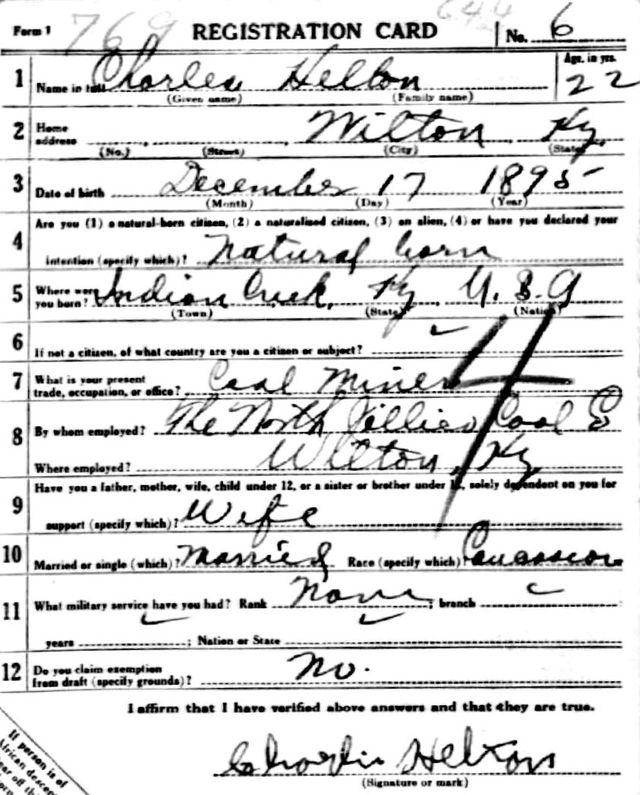 Form 1 769 REGISTRATION CARD 644 No. 6
1 Name in full Charles Helton Age, in yrs. 22
(Given name) (Family name)
2 Home address Wilton Ky.
(No.) (Street) (City) (State)
3 Date of birth December 17 1895
(Month) (Day) (Year)
4 Are you (1) a natural-born citizen, (2) a naturalized citizen, (3) an alien, (4) or have you declared your
intention (specify which)? Natural born
5 Where were you born? Indian Creek, Ky, U.S.A
(Town) (State) (Nation)
6 If not a citizen, of what country are you a citizen or subject?
7 What is your present trade, occupation, or office? Coal Miner
8 By whom employed? The North Jellico Coal
Where employed? Wilton, Ky
9 Have you a father, mother, wife, child under 12, or a sister or brother under 12, solely dependent on you for
support (specify which)? Wife
10 Married or single (which)? Married Race (specify which)? Caucasian
11 What military service have you had? Rank None ; branch
years ; Nation or State
12 Do you claim exemption from draft (specify grounds)? No.
I affirm that I have verified above answers and that they are true.
Charlie Helton
(Signature or mark)
If person is of
African